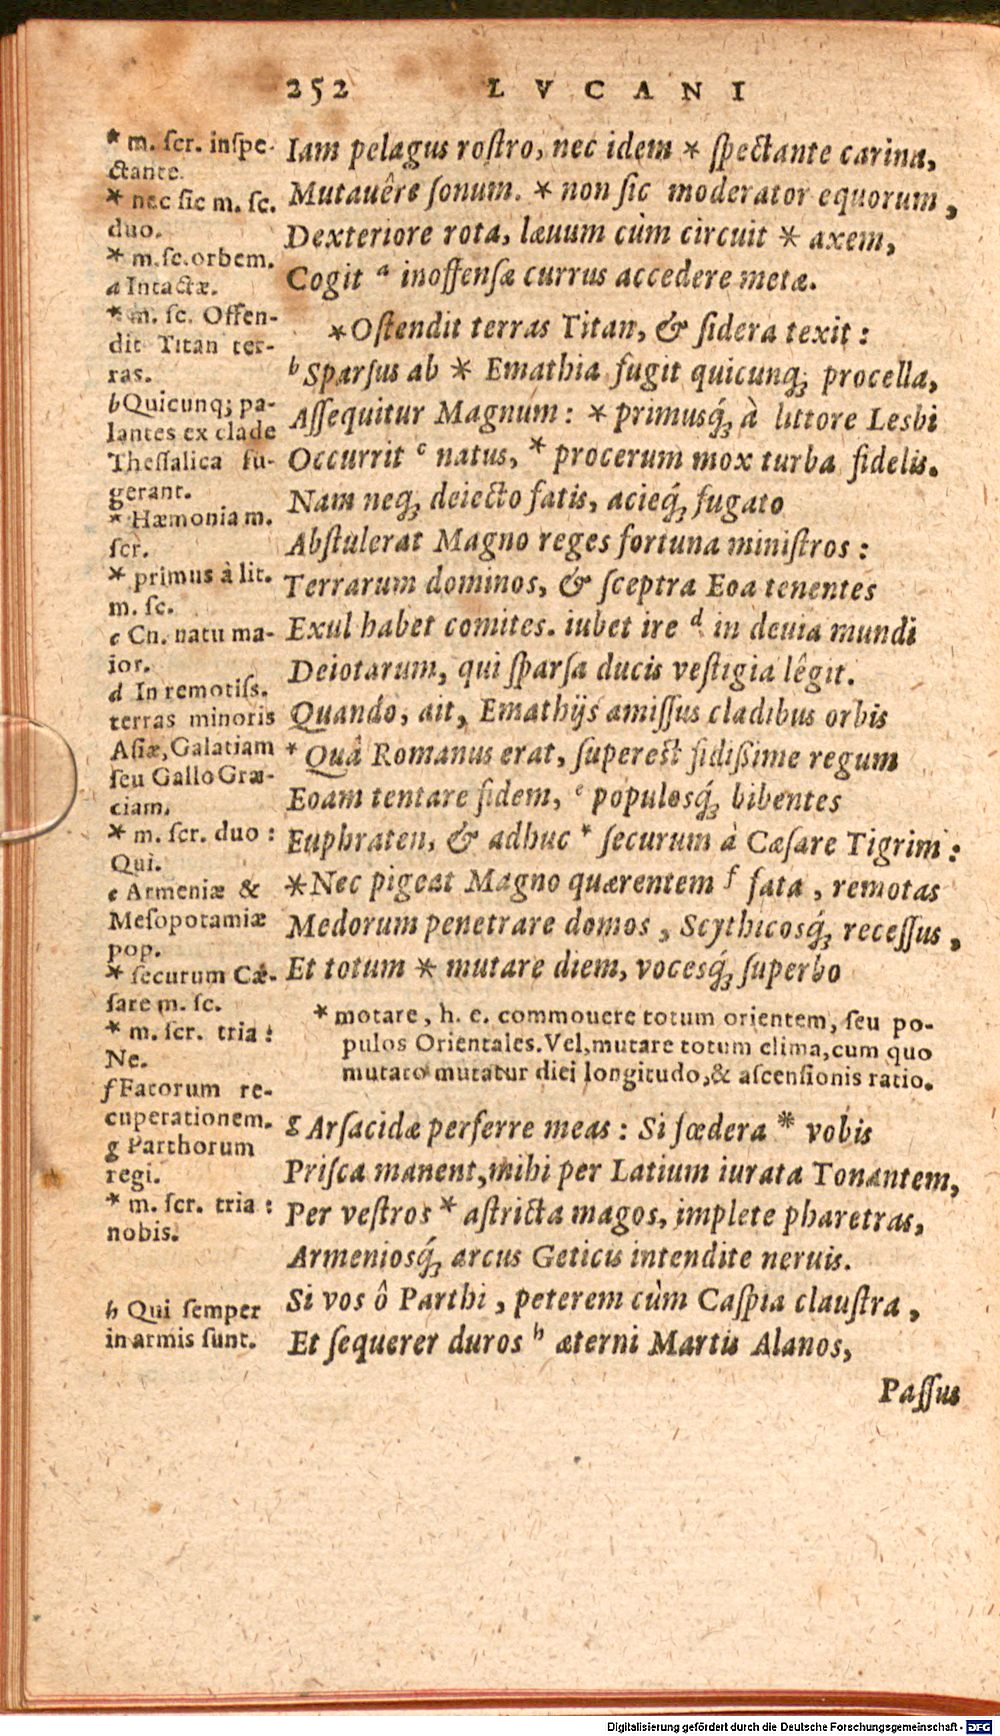 252 LVCANI
* m. ſcr. inſpe-
ctante.
* nec ſic m. ſc.
duo.
* m. ſc. orbem.
a Intactæ.
* m. ſc. Offen-
dit Titan ter-
ras.
b Quicunq; pa-
lantes ex clade
Theſſalica fu-
gerant.
* Hæmonia m.
ſcr.
* primus à lit.
m. ſc.
c Cn. natu ma-
ior.
d In remotiſſ.
terras minoris
Aſiæ, Galatiam
ſeu Gallo Græ-
ciam.
* m. ſcr. duo :
Qui.
e Armeniæ &
Meſopotamiæ
pop.
* ſecurum Cæ-
ſare m. ſc.
* m. ſcr. tria :
Ne.
f Fatorum re-
cuperationem.
g Parthorum
regi.
* m. ſcr. tria :
nobis.
h Qui ſemper
in armis ſunt.
Iam pelagus roſtro, nec idem * ſpectante carina,
Mutauêre ſonum. * non ſic moderator equorum,
Dexteriore rota, læuum cùm circuit * axem,
Cogit a inoffenſæ currus accedere metæ.
* Oſtendit terras Titan, & ſidera texit :
b Sparſus ab * Emathia fugit quicunq; procella,
Aſſequitur Magnum : * primusq́; à littore Lesbi
Occurrit c natus, * procerum mox turba fidelis.
Nam neq; deiecto fatis, acieq́; fugato
Abſtulerat Magno reges fortuna miniſtros :
Terrarum dominos, & ſceptra Eoa tenentes
Exul habet comites. iubet ire d in deuia mundi
Deiotarum, qui ſparſa ducis veſtigia lêgit.
Quando, ait, Emathijs amiſſus cladibus orbis
* Quâ Romanus erat, ſupereſt fidißime regum
Eoam tentare fidem, e populosq́; bibentes
Euphraten, & adhuc * ſecurum à Cæſare Tigrim :
* Nec pigeat Magno quærentem f fata, remotas
Medorum penetrare domos, Scythicosq́; receſſus,
Et totum * mutare diem, vocesq́; ſuperbo
* motare, h. e. commouere totum orientem, ſeu po-
pulos Orientales. Vel, mutare totum clima, cum quo
mutato mutatur diei longitudo, & aſcenſionis ratio.
g Arſacidæ perferre meas : Si fœdera * vobis
Priſca manent, mihi per Latium iurata Tonantem,
Per veſtros * aſtricta magos, implete pharetras,
Armeniosq́; arcus Geticis intendite neruis.
Si vos ô Parthi, peterem cùm Caſpia clauſtra,
Et ſequerer duros h æterni Martis Alanos,
Paſſus
Digitalisierung gefördert durch die Deutsche Forschungsgemeinschaft - DFG